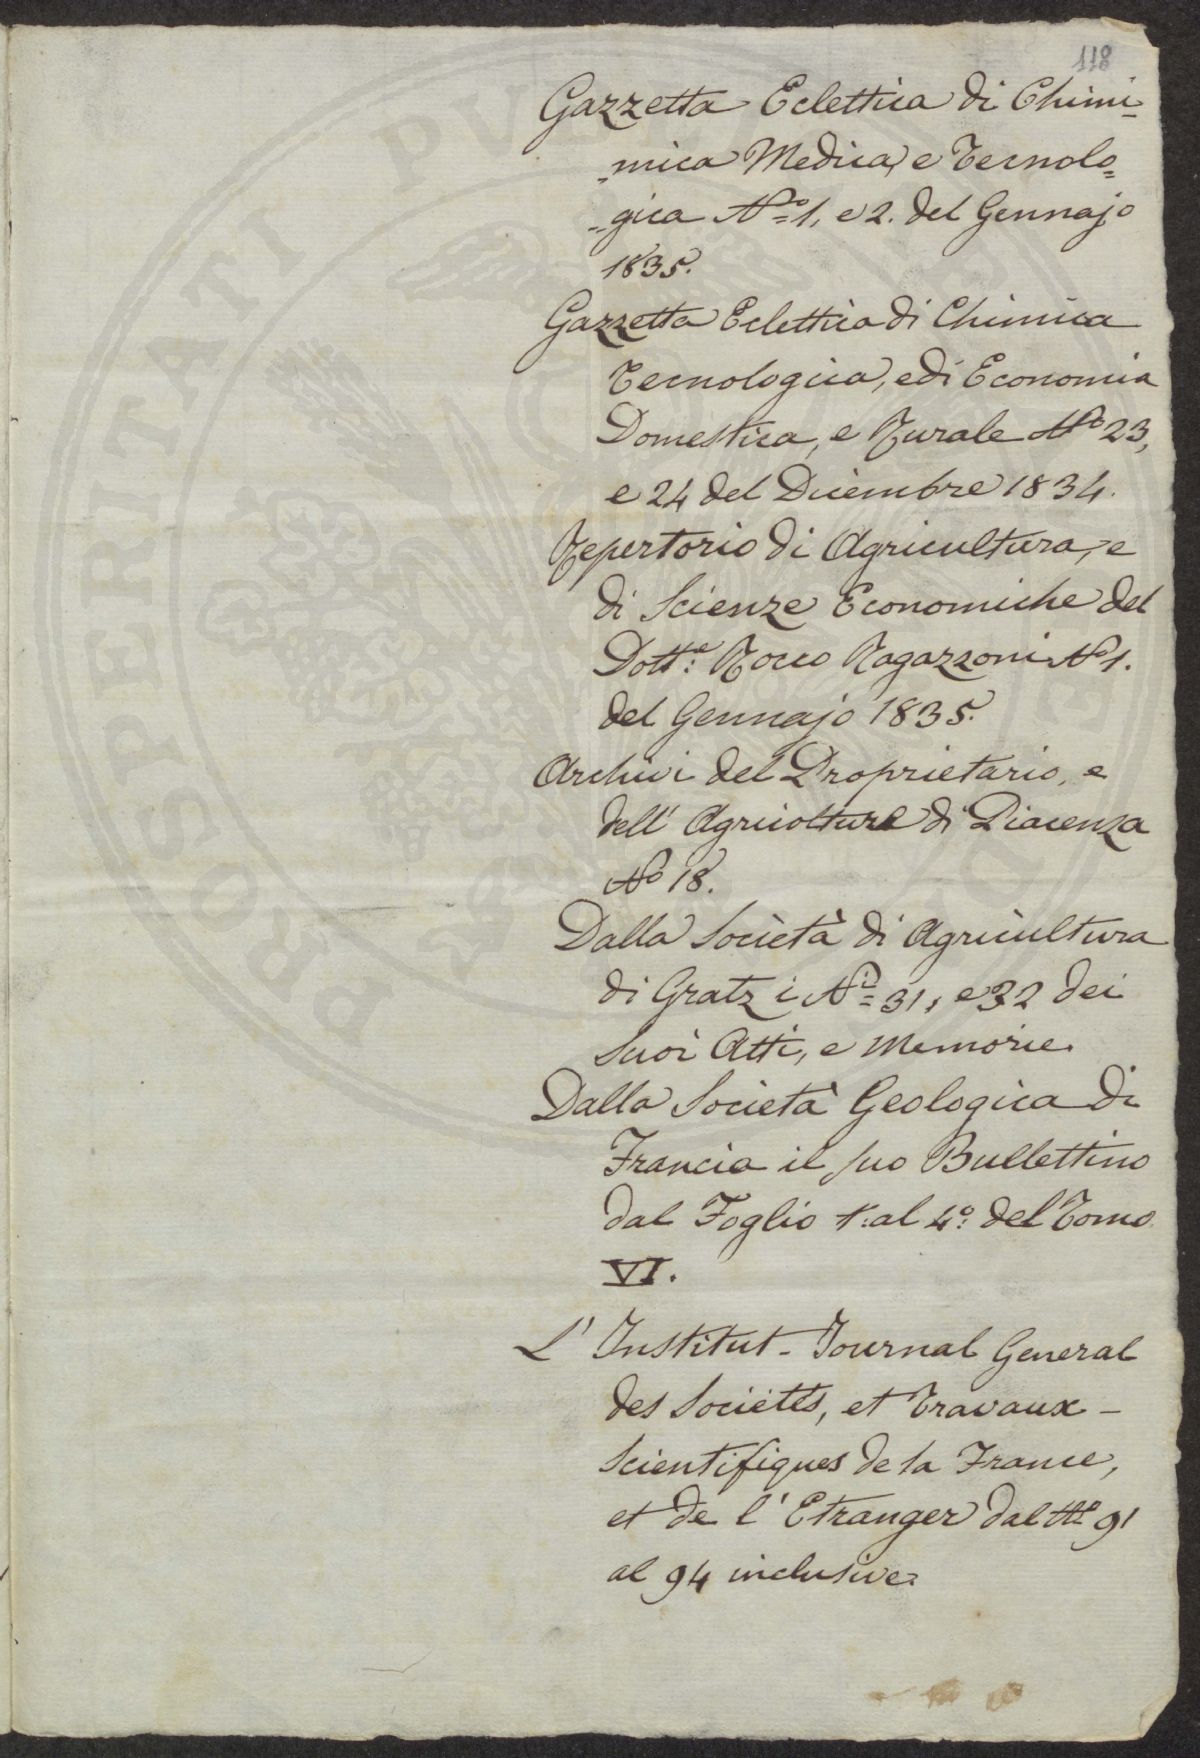 118
Gazzetta Eclettica di Chimi-
-mica Medica, e Tecnolo=
=gica N.o 1, e 2. del Gennajo
1835.
Gazzetta Eclettica di Chimica
Tecnologica, e di Economia
Domestica, e Rurale No 23,
e 24 del Dicembre 1834.
Repertorio di Agricultura, e
di Scienze Economiche del
Dott.e Rocco Ragazzoni No 1.
del Gennajo 1835.
Archivi del Proprietario, e
dell' Agricolture di Piacenza
No 18.
Dalla Società di Agricultura
di Gratz i N.i 31, e 32 dei
suoi Atti, e Memorie.
Dalla Società Geologica di
Francia il suo Bullettino
dal Foglio 1.o al 4.o del Tomo
VI.
L' Institut - Journal General
des Societés, et Travaux -
Scientifiques de la France,
et de l' Etranger dal No 91
al 94 inclusive.
PROSPERITATI PVBLICAE